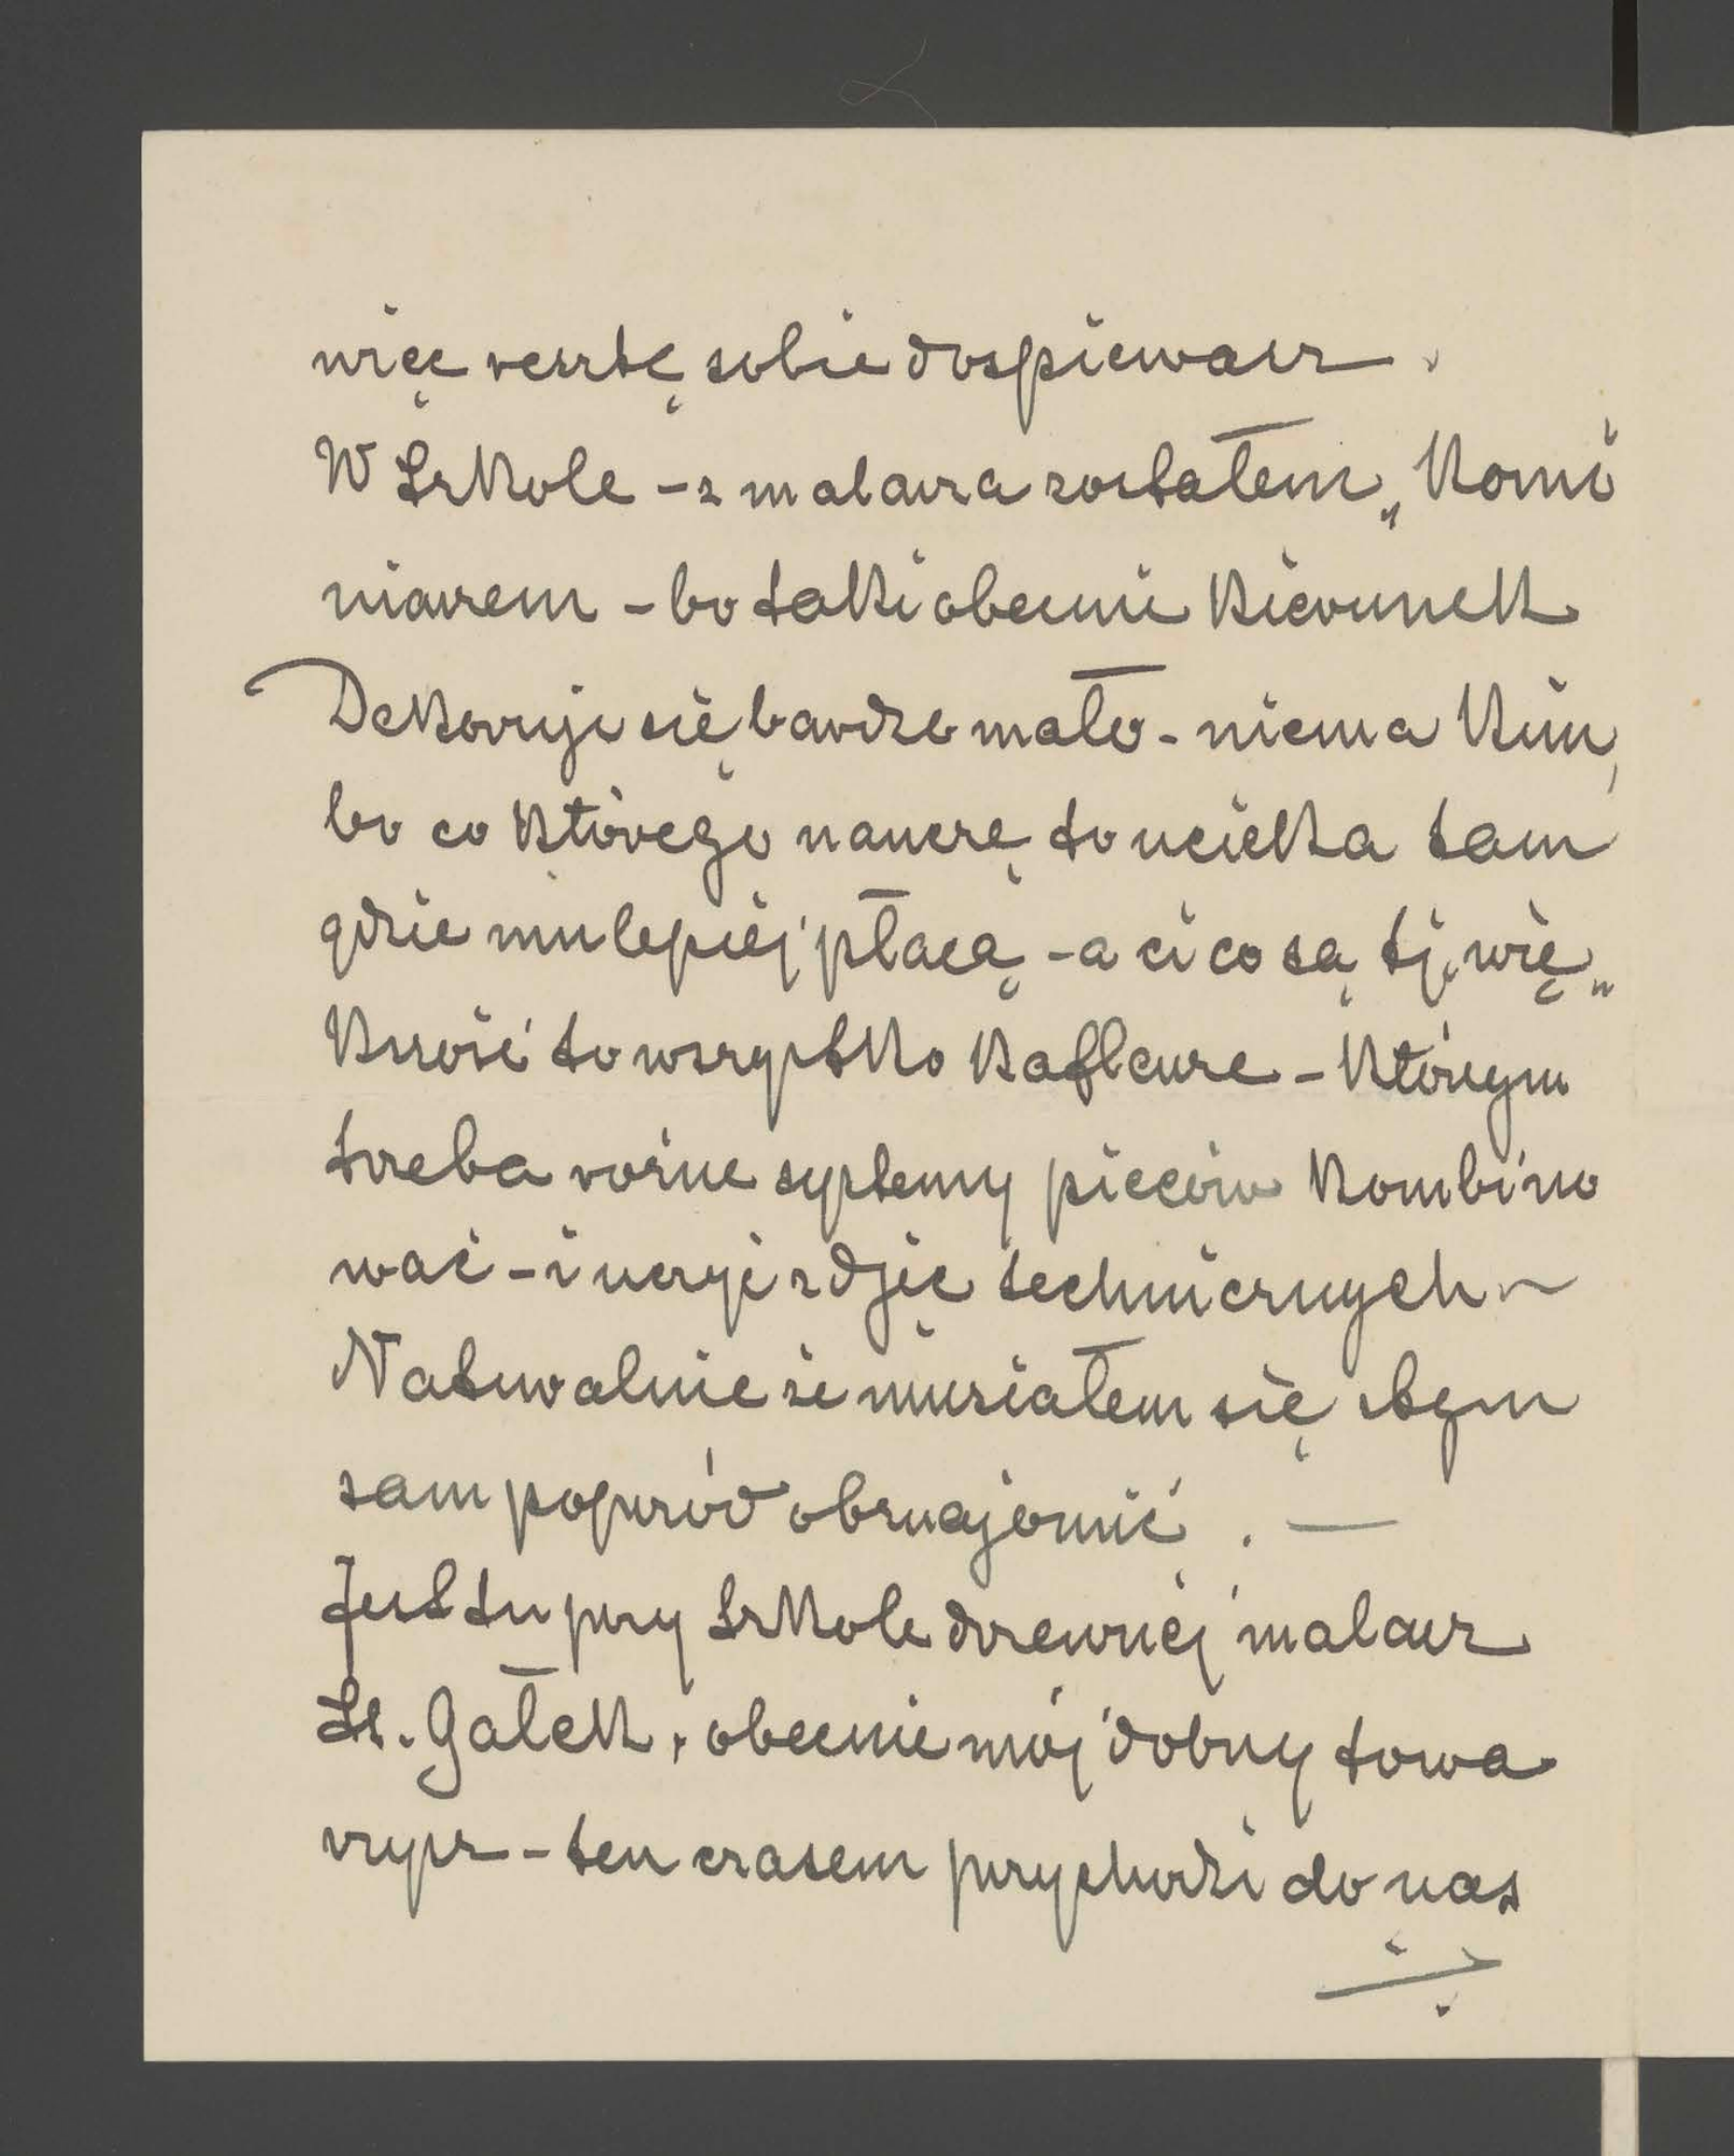 więc resztę sobie dospiewasz.
W Szkole – z malarza zostałem „Komi
niarzem – bo taki obecnie kierunek
Dekoruje się bardzo mało – niema kim,
bo co którego nauczę to ucieka tam
gdzie mu lepiej płacą – a ci co są tj. wię„
kszość to wszystko kaflarze – którym
trzeba rożne systemy pieców kombino
wać – i uczyć zdjęć technicznych ~
Naturalnie że musiałem się stym
sam poprzód obznajomić. —
Jest tu przy Szkole drzewnej malarz
St. Gałek, obecnie mój dobry towa
rzysz – ten czasem przychodzi do nas